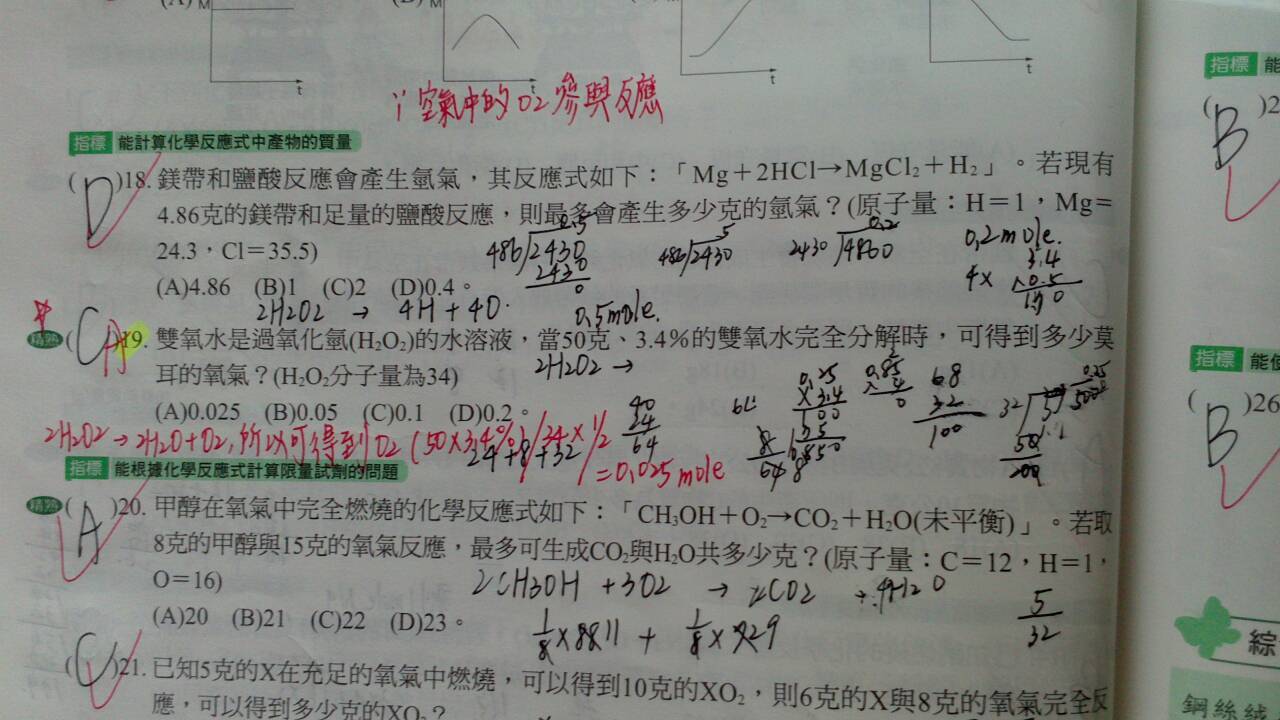 M
M
t
t
t
t
∵空氣中的O2參與反應
指標 能計算化學反應式中產物的質量
(D)18. 鎂帶和鹽酸反應會產生氫氣，其反應式如下：「Mg＋2HCl→MgCl₂＋H₂」。若現有
4.86克的鎂帶和足量的鹽酸反應，則最多會產生多少克的氫氣？(原子量：H＝1，Mg＝
24.3，Cl＝35.5)
0.5
486 2430
2430
0
5
486 2430
0.2
2430 4860
0.2mole.
(A)4.86 (B)1 (C)2 (D)0.4。
2H2O2 → 4H + 4O
0.5mole.
精熟 (C)A 19. 雙氧水是過氧化氫(H₂O₂)的水溶液，當50克、3.4％的雙氧水完全分解時，可得到多少莫
耳的氧氣？(H₂O₂分子量為34)
2H2O2 →
(A)0.025 (B)0.05 (C)0.1 (D)0.2。
2H2O2→2H2O+O2,所以可得到O2 (50×3.4%)/34×1/2
=0.025mole
68
32
100
指標 能根據化學反應式計算限量試劑的問題
精熟 (A)20. 甲醇在氧氣中完全燃燒的化學反應式如下：「CH₃OH＋O₂→CO₂＋H₂O(未平衡)」。若取
8克的甲醇與15克的氧氣反應，最多可生成CO₂與H₂O共多少克？(原子量：C＝12，H＝1，
O＝16)
2CH3OH +3O2 → 2CO2 + 4H2O
5
32
(A)20 (B)21 (C)22 (D)23。
(C)21. 已知5克的X在充足的氧氣中燃燒，可以得到10克的XO₂，則6克的X與8克的氧氣完全反
應，可以得到多少克的XO₂？
指標
(B)2
指標
(B)26
綜
鋼絲絨